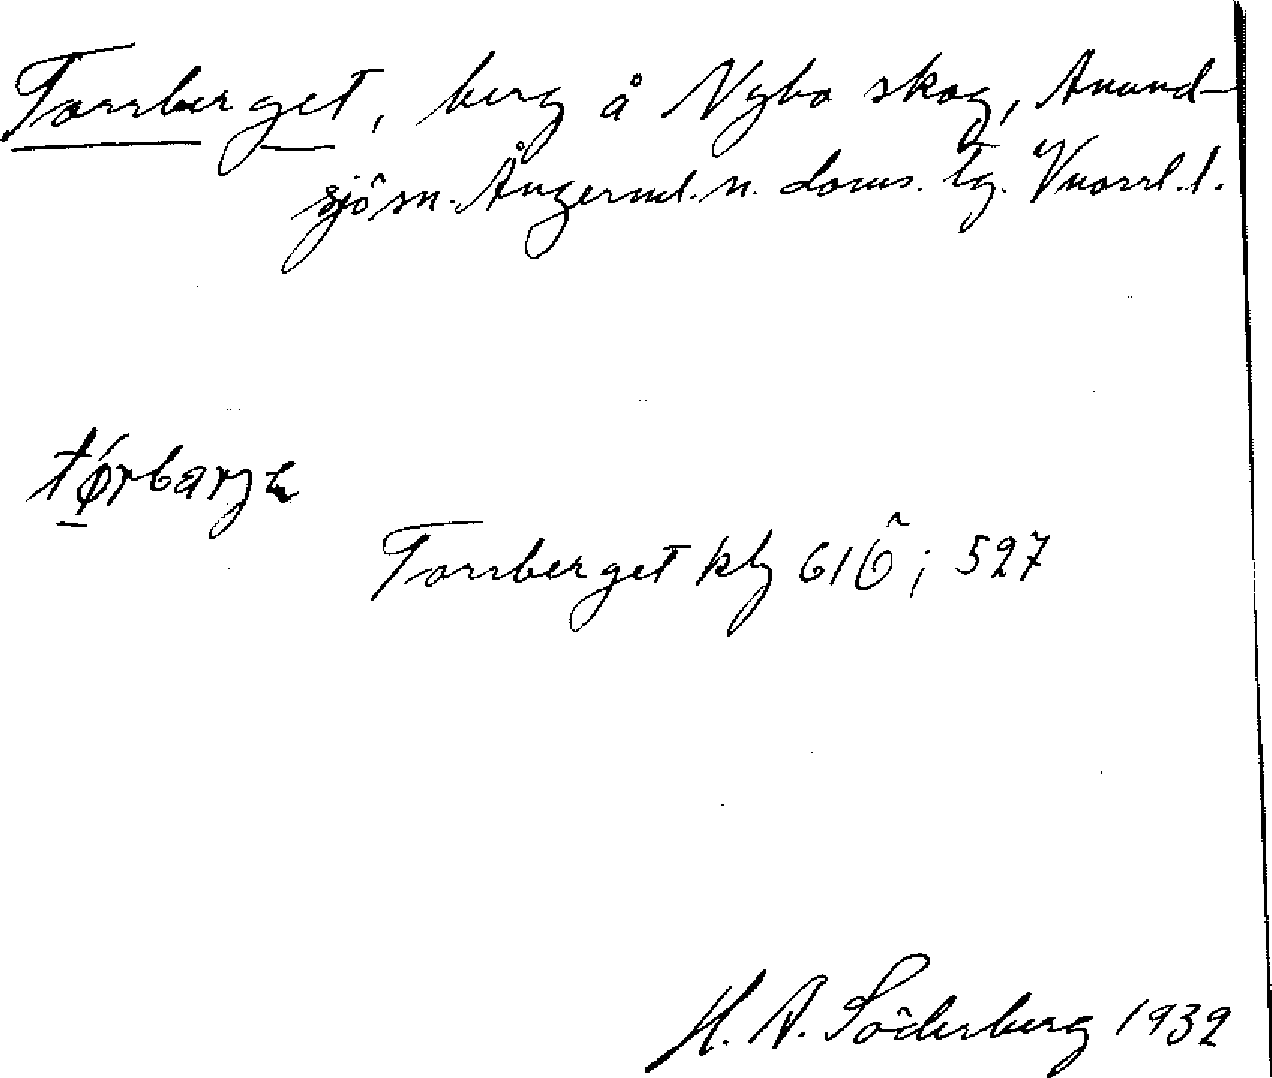 Torrberget, berg å Nybo skog, Anund-
sjö sn. Ångerml. n. doms. lg. Vnorrl. l.
tørbarjɛ
Torrberget kbl 61 Ö ; 527
H. A. Söderberg 1932